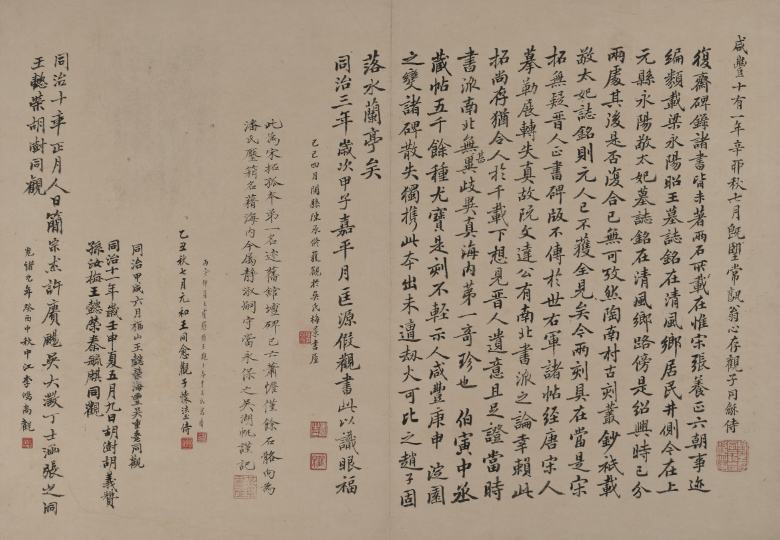 咸豐十有一年辛酉秋七月既望常熟翁心存觀子同龢侍
復齋碑錄諸書皆未著兩石所載在惟宋張養正六朝事迹
編類載梁永陽昭王墓誌銘在清風鄉居民井側今在上
元縣永陽敬太妃墓誌銘在清風鄉路傍是紹興時已分
兩處其後是否復合已無可攷然陶南村古刻叢鈔祇載
敬太妃誌銘則元人已不獲全見矣今兩刻具在當是宋
拓無疑晉人正書碑版不傳於世右軍諸帖經唐宋人
摹勒展轉失真故阮文達公有南北書派之論幸賴此
拓尚存猶令人於千載下想見晉人遺意且足證當時
書派南北無甚歧異真海內第一奇珍也 伯寅中丞
藏帖五千餘種尤寶是刻不輕示人咸豐庚申 淀園
之變諸碑散失獨攜此本出未遭劫火可比之趙子固
落水蘭亭矣
同治三年歲次甲子嘉平月匡源假觀書此以識眼福
己巳四月閩縣陳承裘觀於吳氏梅景書屋
此為宋拓孤本第一名迹舊館壇碑已六
潘氏寶籍名藉海內今屬靜淑嗣守當永保之吳湖帆謹記
乙丑秋七月元和王同愈觀子懷鋆侍
同治甲戌六月福山王懿榮海豐吳重憙同觀
同治十一年歲壬申夏五月九日胡澍胡義贊
孫汝梅王懿榮秦毓麒同觀
同治十年辛正月人日簡宗杰許賡颺吳大澂丁士涵張之洞
王懿榮胡澍同觀
光緒 年癸 中秋中江李鴻裔觀